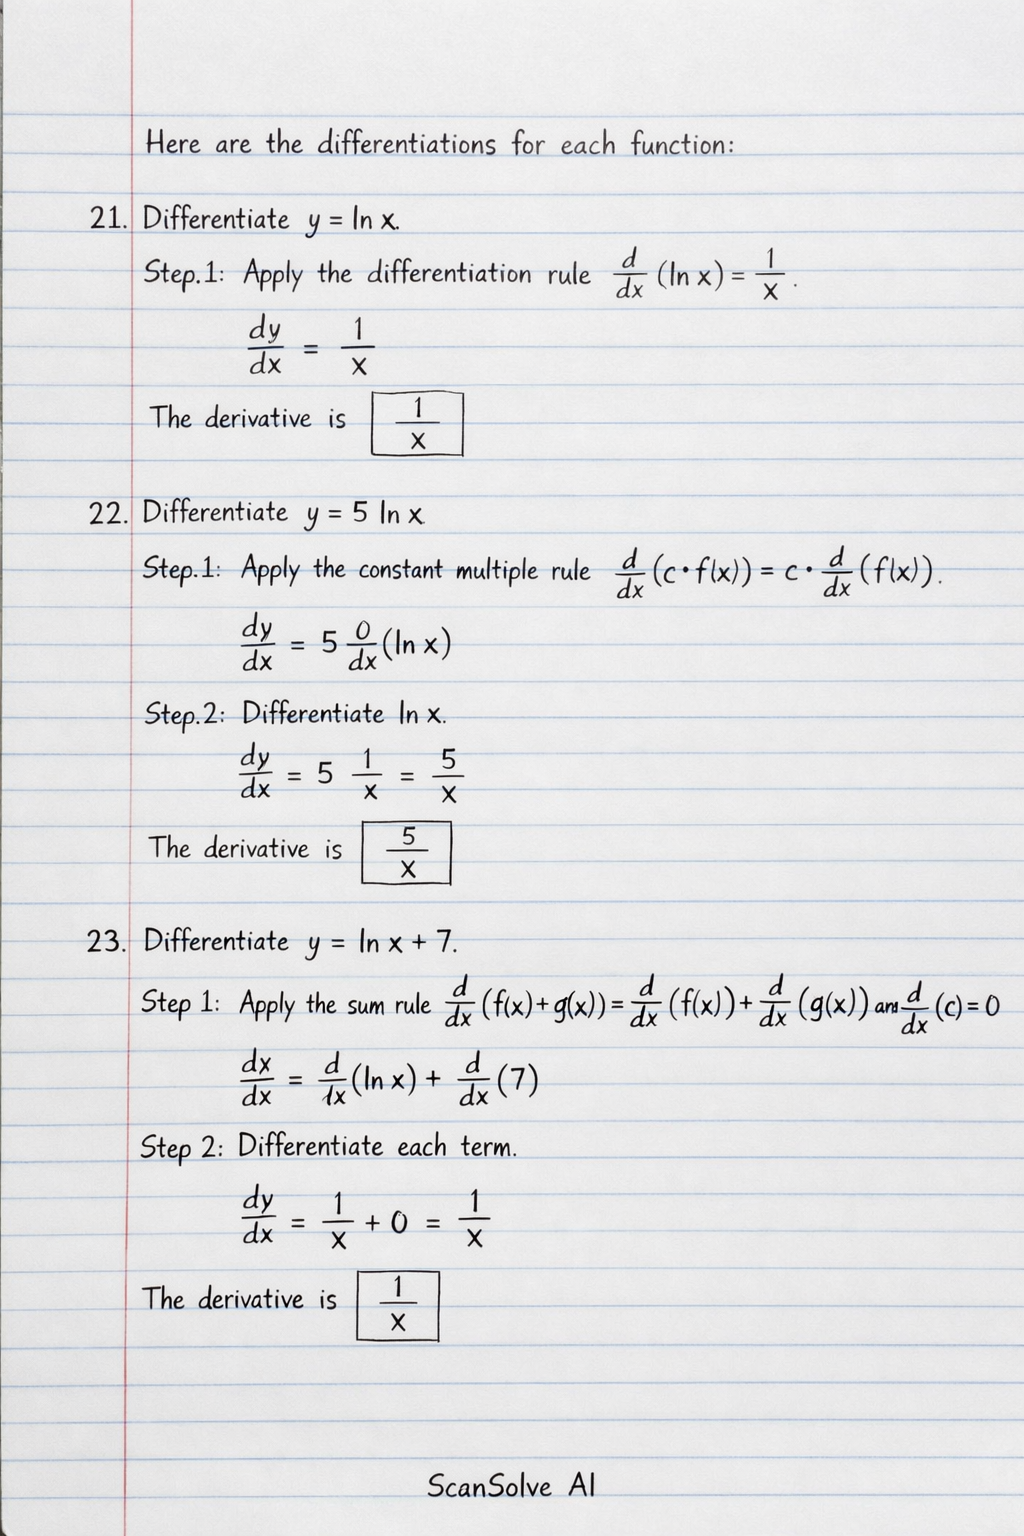 Here are the differentiations for each function:
21. Differentiate y = ln x.
Step.1: Apply the differentiation rule d/dx (ln x) = 1/x.
dy/dx = 1/x
The derivative is 1/x
22. Differentiate y = 5 ln x
Step.1: Apply the constant multiple rule d/dx (c·f(x)) = c · d/dx (f(x)).
dy/dx = 5 0/dx (ln x)
Step.2: Differentiate ln x.
dy/dx = 5 1/x = 5/x
The derivative is 5/x
23. Differentiate y = ln x + 7.
Step 1: Apply the sum rule d/dx (f(x) + g(x)) = d/dx (f(x)) + d/dx (g(x)) and d/dx (c) = 0
dx/dx = d/dx (ln x) + d/dx (7)
Step 2: Differentiate each term.
dy/dx = 1/x + 0 = 1/x
The derivative is 1/x
ScanSolve AI